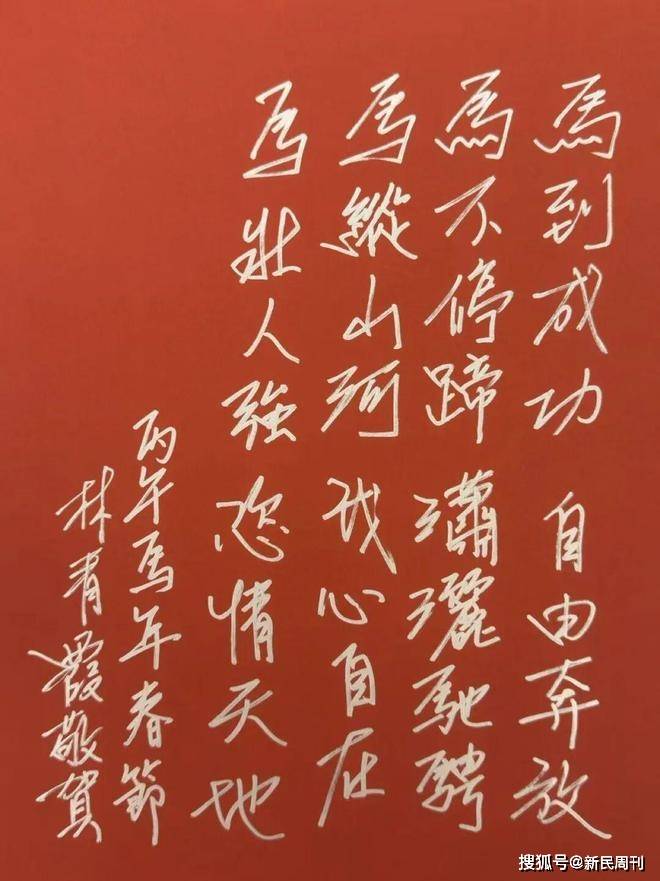 馬到成功 自由奔放
馬不停蹄 瀟灑馳騁
馬縱山河 我心自在
馬壯人強 恣情天地
丙午馬年春節
林青霞敬賀
搜狐号@新民周刊